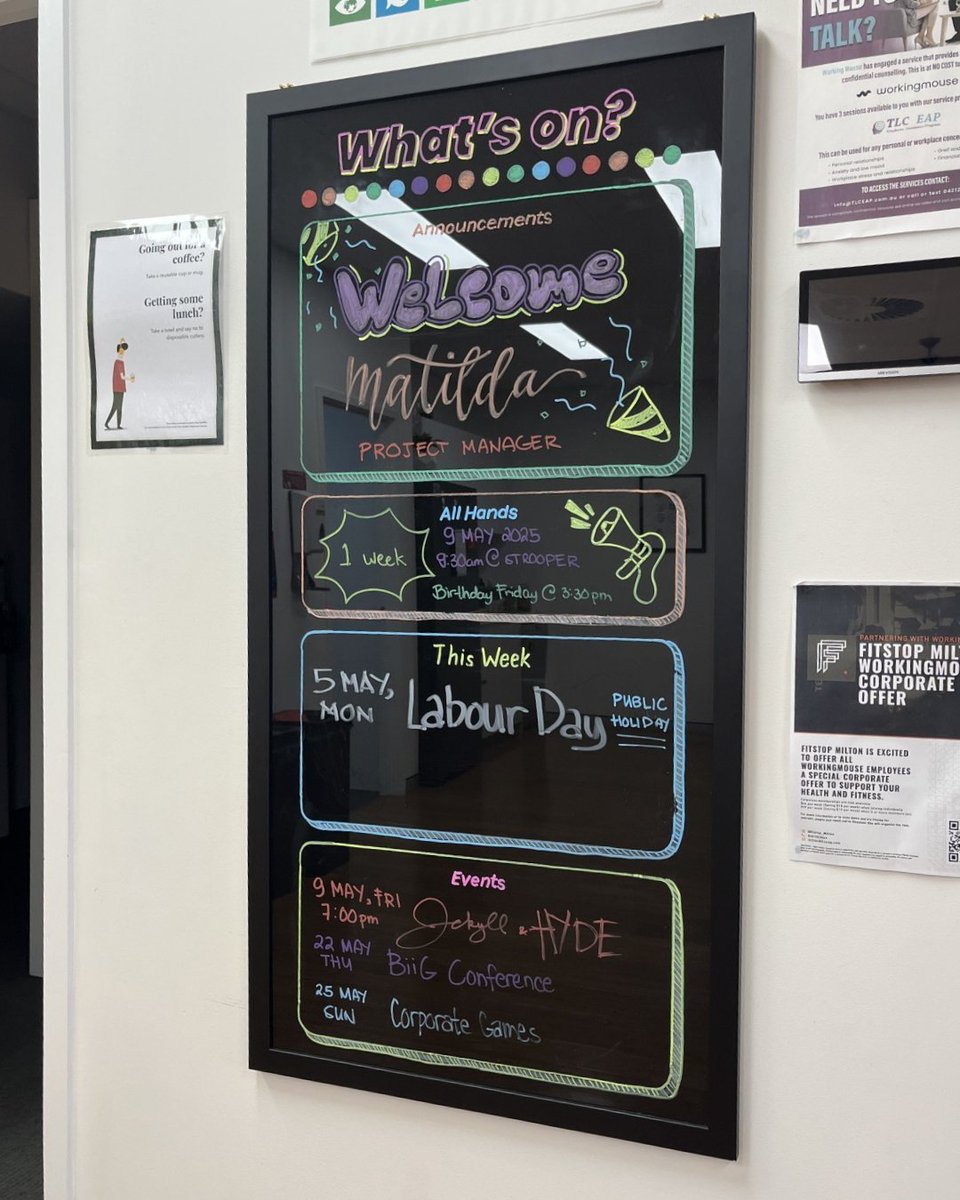 What's on?
Announcements
Welcome
Matilda
PROJECT MANAGER
All Hands
1 week
9 MAY 2025
9:30am @ STROOPER
Birthday Friday @ 3:30pm
This Week
5 MAY,
MON
Labour Day
PUBLIC
HOLIDAY
Events
9 MAY, FRI
7:00pm
Jekyll & HYDE
22 MAY
THU
BiiG Conference
25 MAY
SUN
Corporate Games
Going out for a
coffee?
Take a reusable cup or mug.
Getting some
lunch?
Take a bowl and say no to
disposable cutlery.
NEED TO
TALK?
Working Mouse has engaged a service that provides
confidential counselling. This is at NO COST to
workingmouse
You have 3 sessions available to you with our service
TLC EAP
This can be used for any personal or workplace
Personal relationships
Anxiety and low mood
Workplace stress and relationships
Grief and
TO ACCESS THE SERVICES CONTACT:
info@TLCEAP.com.au or call or text
HIKVISION
PARTNERING WITH
FITSTOP
WORKINGMOUSE
CORPORATE
OFFER
FITSTOP MILTON IS EXCITED
TO OFFER ALL
WORKINGMOUSE EMPLOYEES
A SPECIAL CORPORATE
OFFER TO SUPPORT YOUR
HEALTH AND FITNESS.